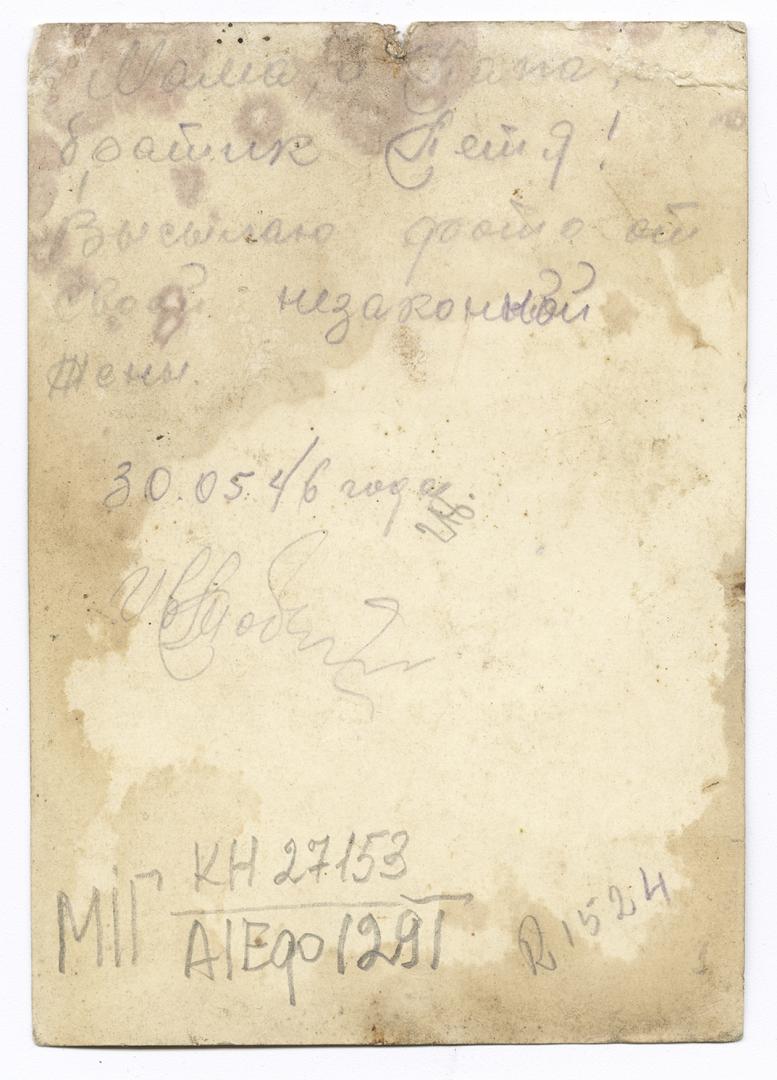 Мама, и Папа, и
братик Петя!
Высылаю фото от
своей незаконной
жены.
30.05 46 года.
КН 27153
МІГ
АІЕфо 1291
R 1524